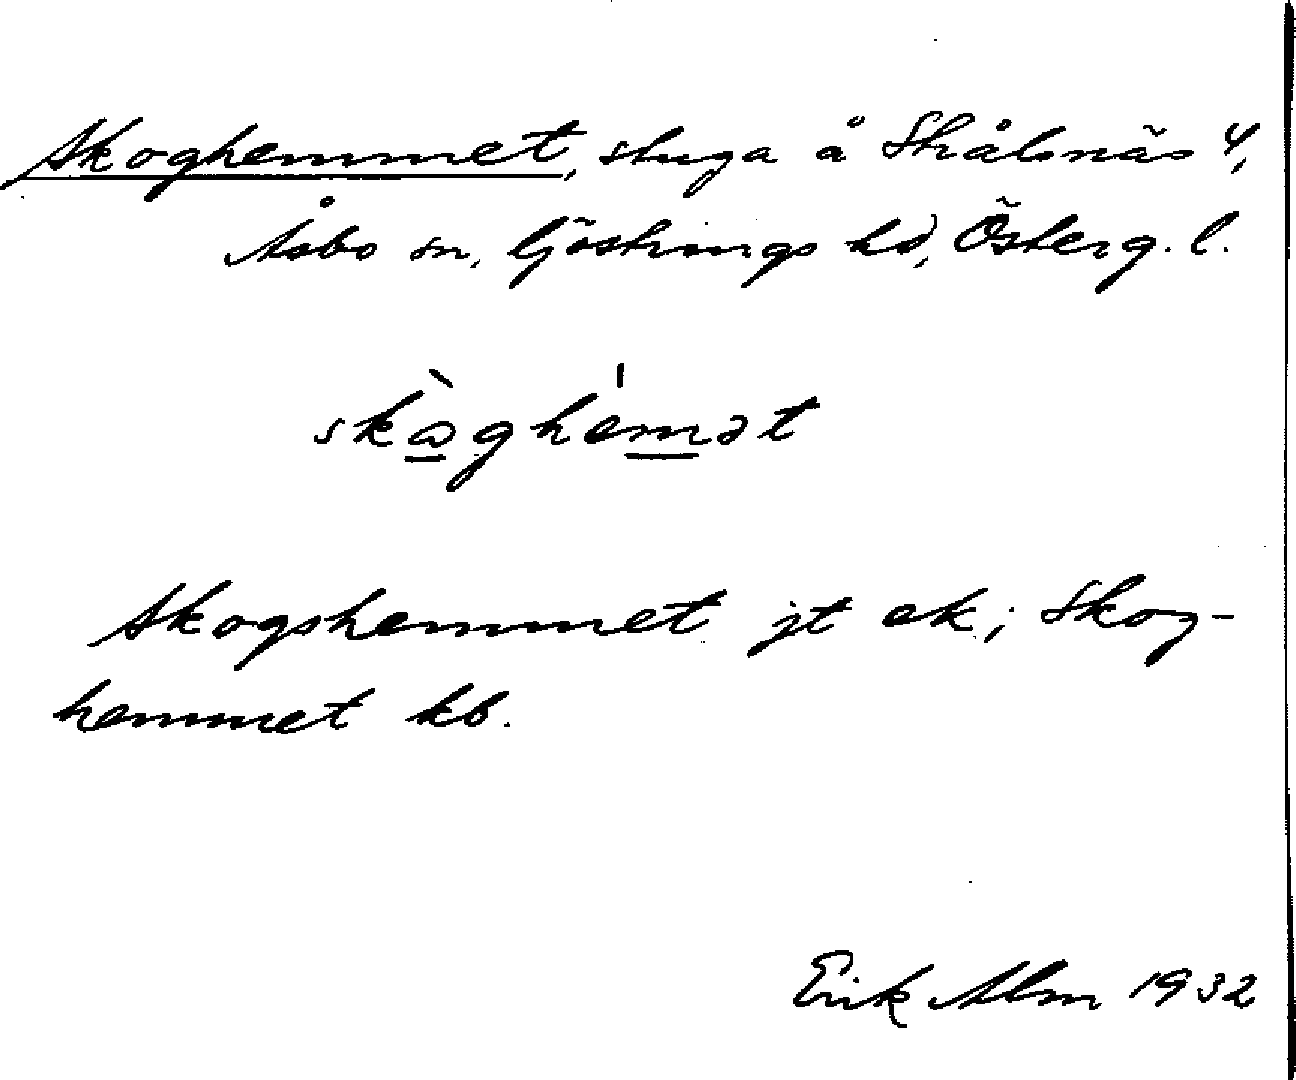 Skoghemmet, stuga å Skålsnäs 4,
Åsbo sn, Göstrings hd, Österg. l.
skòghemət
Skogshemmet jt ek; Skog-
hemmet kb.
Erik Alm 1932